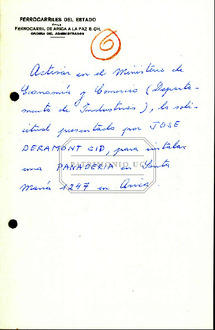 FERROCARRILES DEL ESTADO
FERROCARRIL DE ARICA A LA PAZ S. CH.
OFICINA DEL ADMINISTRADOR
6
Activar en el Ministerio de
Economía y Comercio (Departa-
mento de Industrias), la soli-
citud presentada por JOSE
DERAMONT CID, para instalar
una PANADERIA en Santa
María 1247 en Arica
PATRIMONIO UC